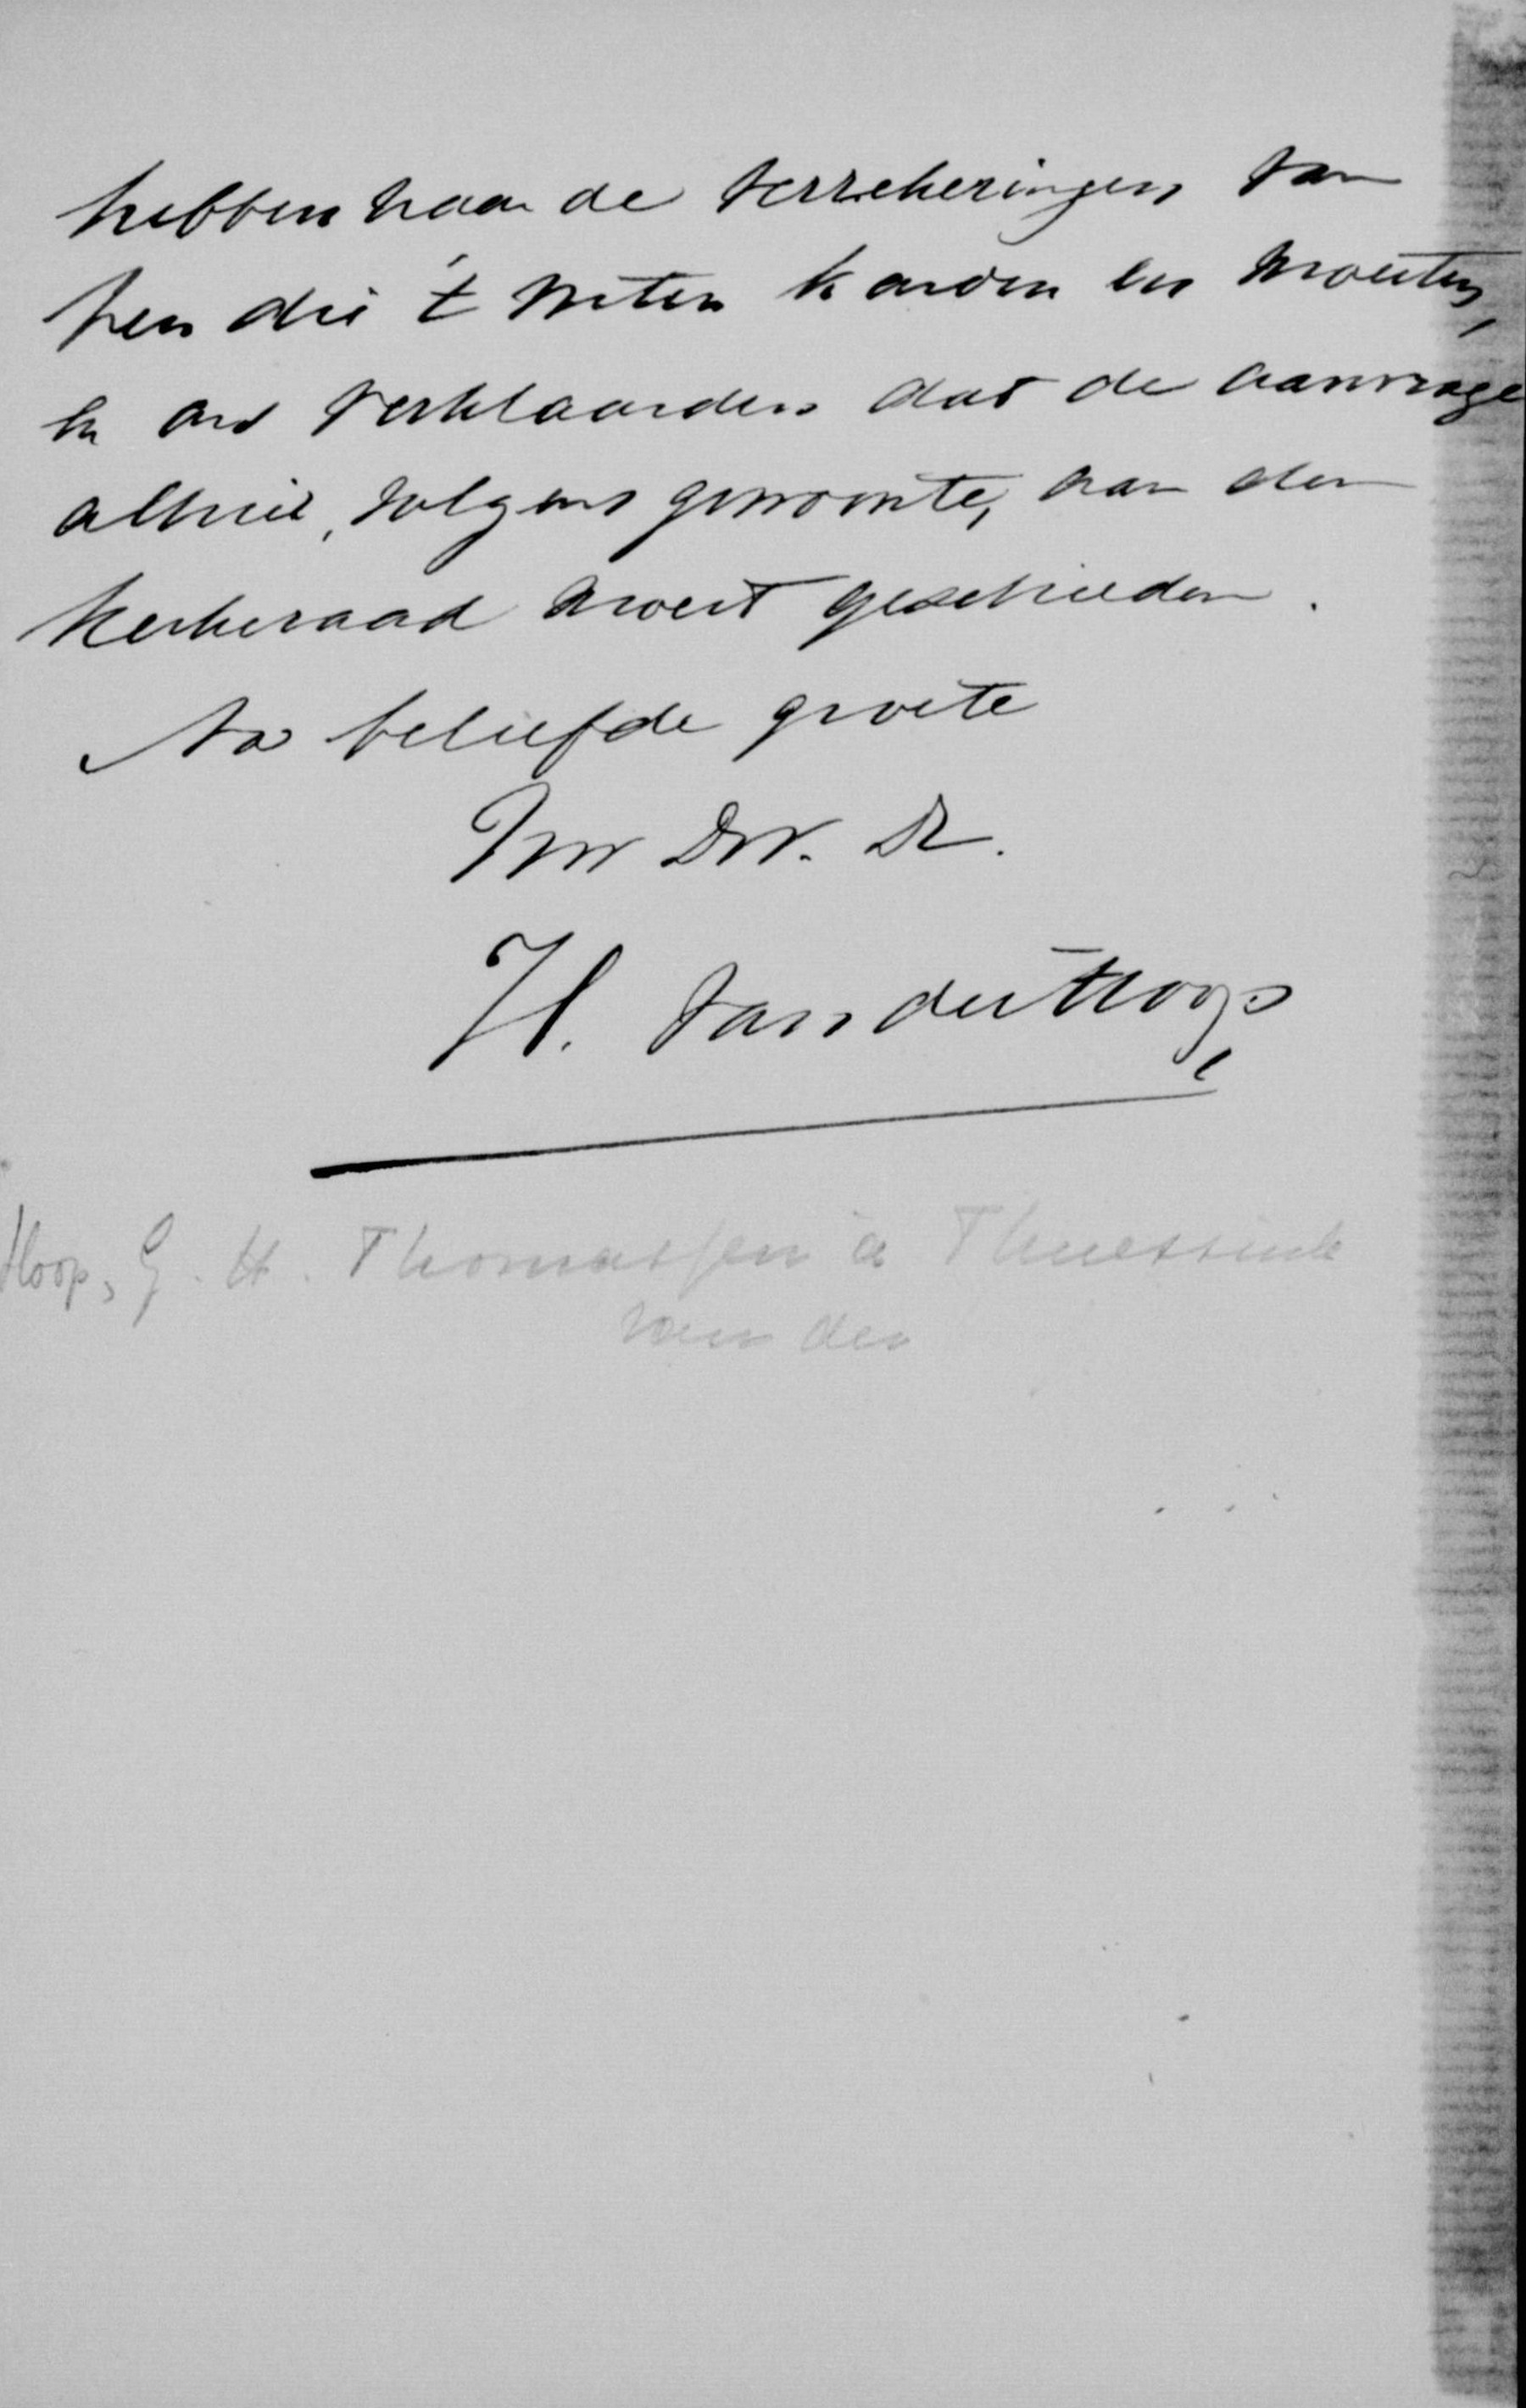 hebben naar de verzekeringen van
hen die 't weten konden en moesten,
en ons verklaarden dat de aanvrage
alhier, volgens gewoonte, aan den
kerkeraad moest geschieden.
Na beliefde groete
Uw Dw. Dr.
H. van der Hoop
Hoop, G. H. Thomassen à Thuessink
van der